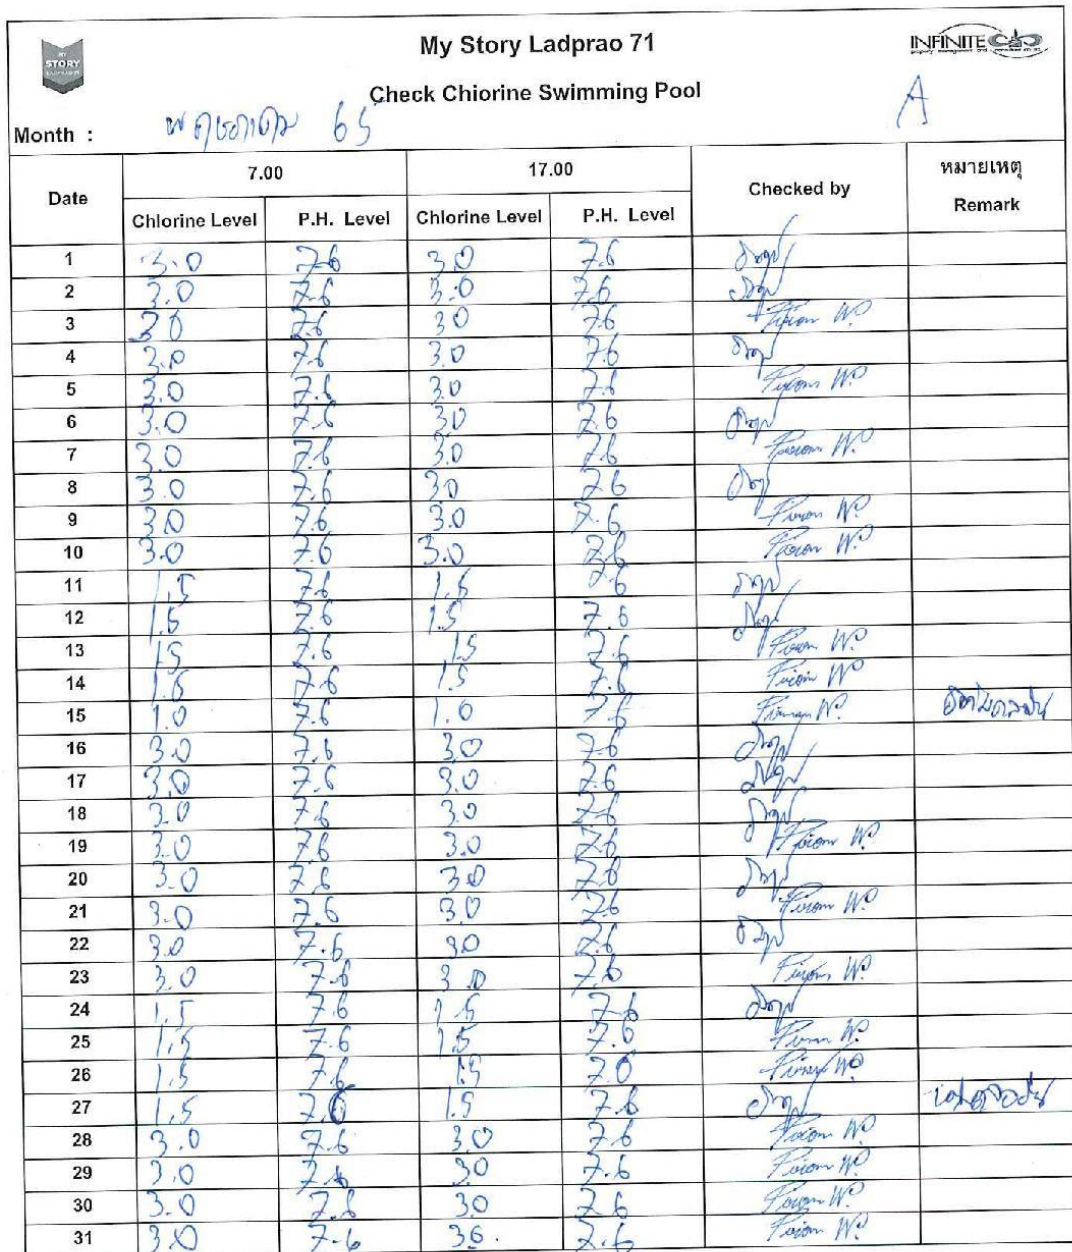 MY
STORY
My Story Ladprao 71
INFINITE
Check Chiorine Swimming Pool
A
Month : พฤษภาคม 65
Date 7.00 17.00 Checked by หมายเหตุ
Remark
Chlorine Level P.H. Level Chlorine Level P.H. Level
1 3.0 7.6 3.0 7.6
2 3.0 7.6 3.0 7.6
3 30 7.6 30 7.6 W.
4 3.0 7.6 3.0 7.6
5 3.0 7.6 3.0 7.6 W.
6 3.0 7.6 30 7.6
7 3.0 7.6 3.0 7.6 W.
8 3.0 7.6 30 76
9 3.0 7.6 3.0 7.6 W.
10 3.0 7.6 3.0 7.6 W.
11 1.5 7.6 1.5 7.6
12 1.5 7.6 1.5 7.6
13 1.5 7.6 1.5 7.6 W.
14 1.5 7.6 1.5 7.6 W.
15 1.0 7.6 1.0 7.6 W.
16 3.0 7.6 3.0 7.6
17 3.0 7.6 3.0 7.6
18 3.0 7.6 3.0 7.6
19 3.0 7.6 3.0 7.6 W.
20 3.0 7.6 30 7.6
21 3.0 7.6 3.0 7.6 W.
22 3.0 7.6 30 7.6
23 3.0 7.6 3.0 7.6 W.
24 1.5 7.6 1.5 7.6
25 1.5 7.6 1.5 7.6 W.
26 1.5 7.6 1.5 7.6 W.
27 1.5 7.6 1.5 7.6
28 3.0 7.6 3.0 7.6 W.
29 3.0 7.6 30 7.6 W.
30 3.0 7.6 30 7.6 W.
31 3.0 7.6 30. 7.6 W.